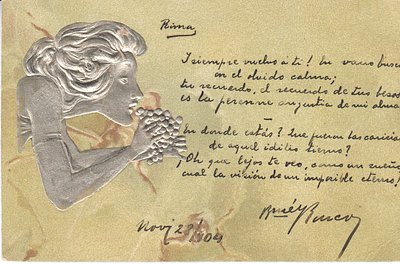 Rima
I siempre vuelvo á ti! En vano busco
en el olvido calma;
tu recuerdo, el recuerdo de tus besos
es la perenne angustia de mi alma.
En donde estás? Que fueron las caricias
de aquel idilio tierno?
¡Oh que lejos te veo, como un sueño,
cual la visión de un imposible eterno!
Novi 28/1904